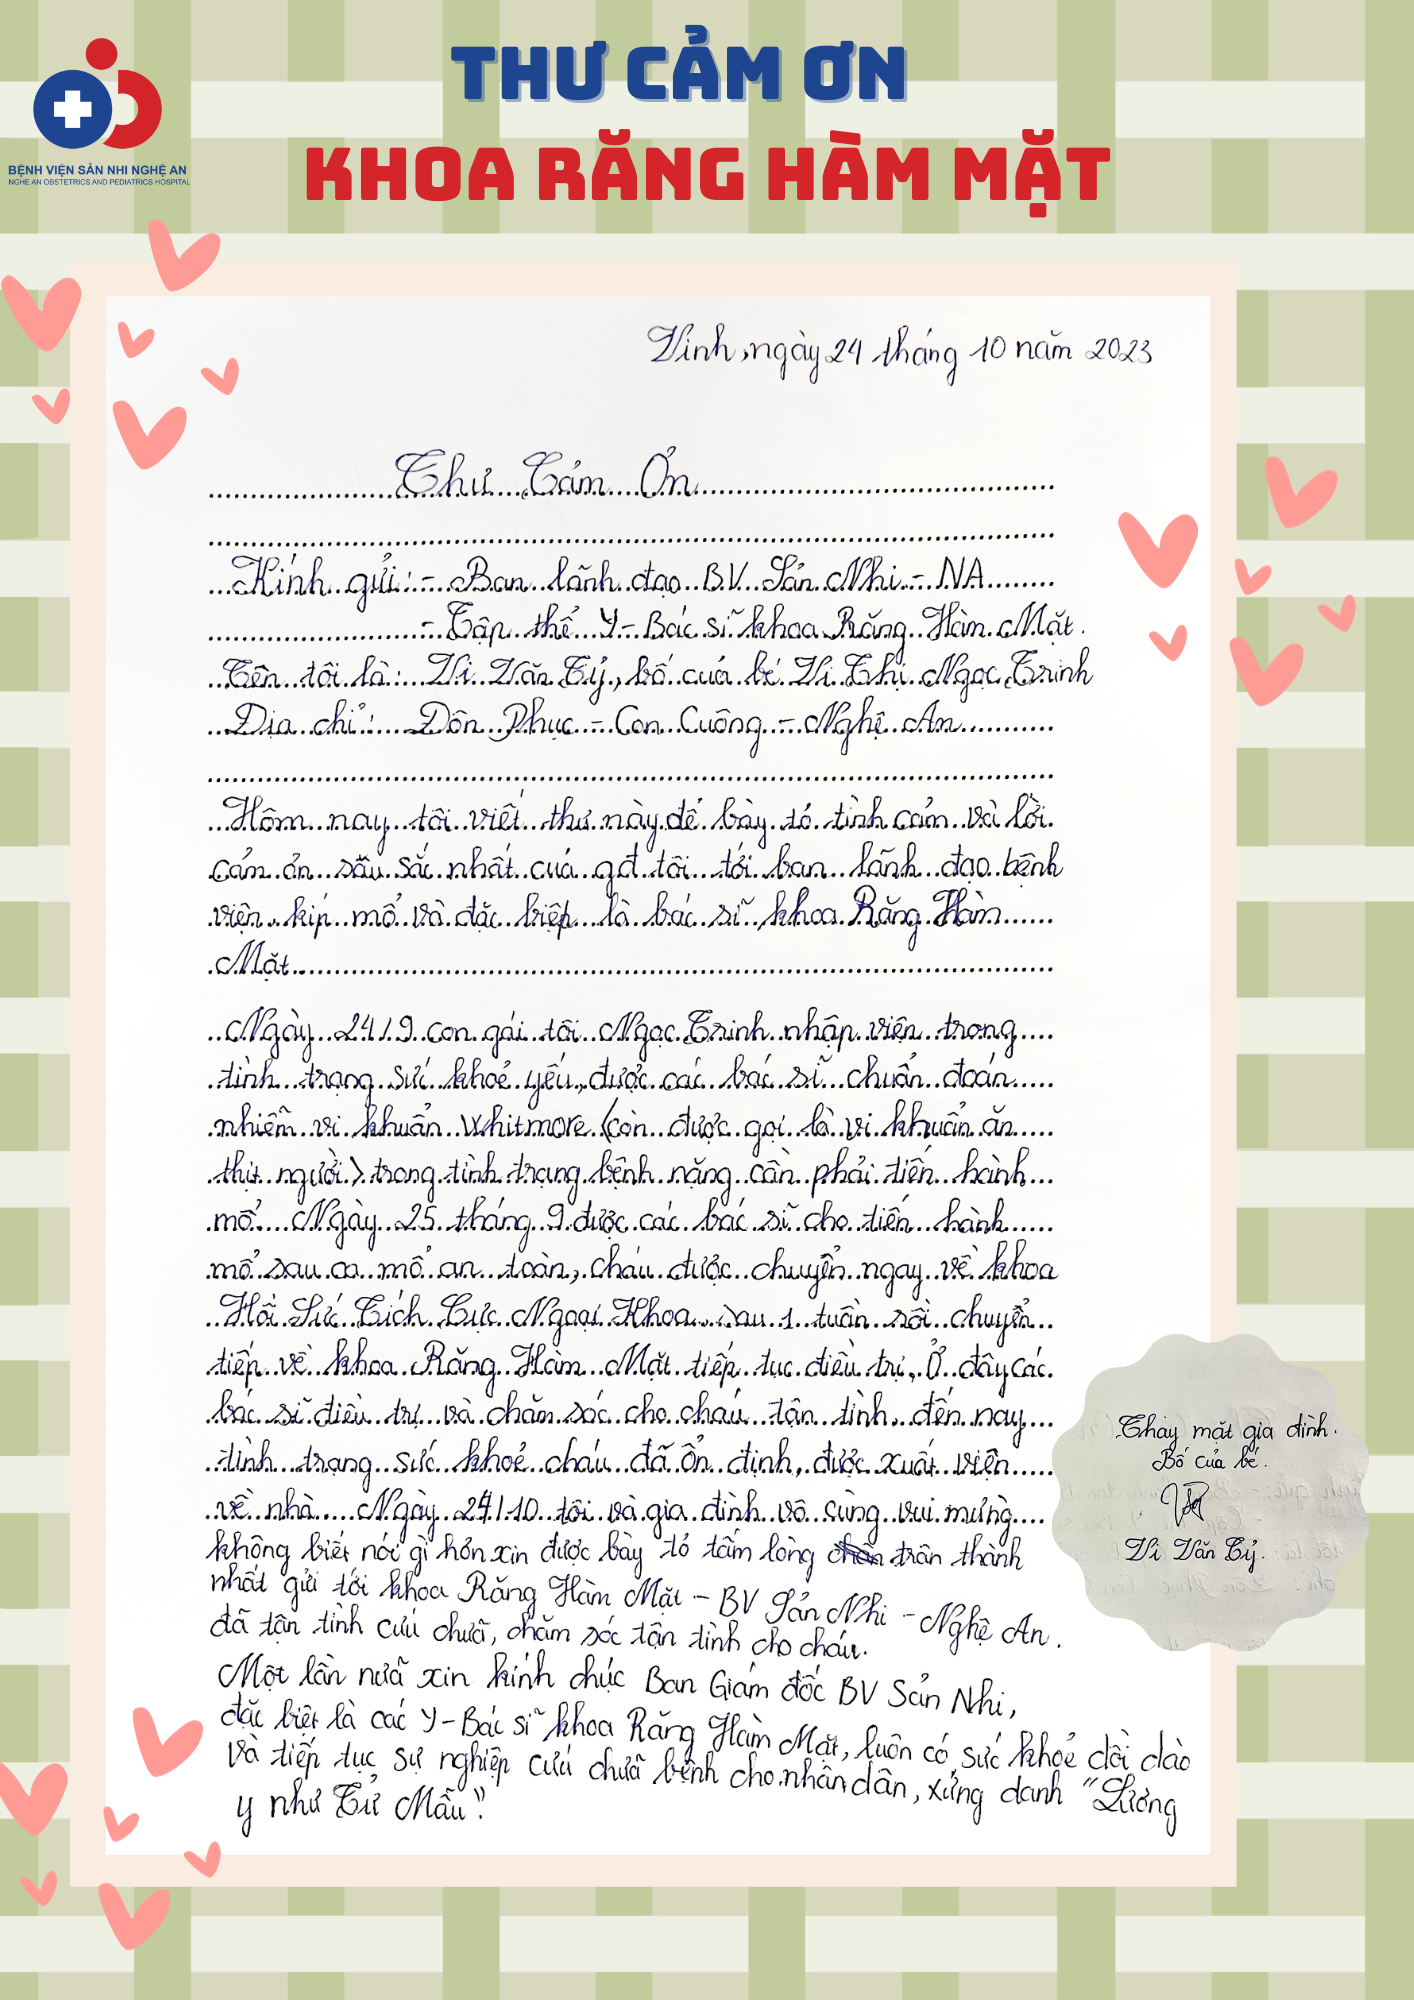 THƯ CẢM ƠN
KHOA RĂNG HÀM MẶT
BỆNH VIỆN SẢN NHI NGHỆ AN
NGHE AN OBSTETRICS AND PEDIATRICS HOSPITAL
Vinh, ngày 24 tháng 10 năm 2023
Thư Cảm Ơn
Kính gửi: - Ban lãnh đạo BV Sản Nhi - NA
- Tập thể Y - Bác sĩ khoa Răng Hàm Mặt.
Tên tôi là: Vi Văn Tỷ, bố của bé Vi Thị Ngọc Trinh
Địa chỉ: Đôn Phục - Con Cuông - Nghệ An
Hôm nay tôi viết thư này để bày tỏ tình cảm và lời
cảm ơn sâu sắc nhất của gđ tôi tới ban lãnh đạo bệnh
viện, kíp mổ và đặc biệt là bác sĩ khoa Răng Hàm
Mặt.
Ngày 24/9 con gái tôi Ngọc Trinh nhập viện trong
tình trạng sức khoẻ yếu, được các bác sĩ chuẩn đoán
nhiễm vi khuẩn Whitmore (còn được gọi là vi khuẩn ăn
thịt người) trong tình trạng bệnh nặng cần phải tiến hành
mổ. Ngày 25 tháng 9 được các bác sĩ cho tiến hành
mổ sau ca mổ an toàn, cháu được chuyển ngay về khoa
Hồi Sức Tích Cực Ngoại Khoa, sau 1 tuần rồi chuyển
tiếp về khoa Răng Hàm Mặt tiếp tục điều trị, Ở đây các
bác sĩ điều trị và chăm sóc cho cháu tận tình, đến nay
tình trạng sức khoẻ cháu đã ổn định, được xuất viện
về nhà. Ngày 24/10 tôi và gia đình vô cùng vui mừng
không biết nói gì hơn xin được bày tỏ tấm lòng trân thành
nhất gửi tới khoa Răng Hàm Mặt - BV Sản Nhi - Nghệ An
đã tận tình cứu chữa, chăm sóc tận tình cho cháu.
Một lần nữa xin kính chúc Ban Giám đốc BV Sản Nhi,
đặc biệt là các Y - Bác sĩ khoa Răng Hàm Mặt, luôn có sức khoẻ dồi dào
và tiếp tục sự nghiệp cứu chữa bệnh cho nhân dân, xứng danh "Lương
y như Từ Mẫu".
Thay mặt gia đình.
Bố của bé.
Vi Văn Tỷ.